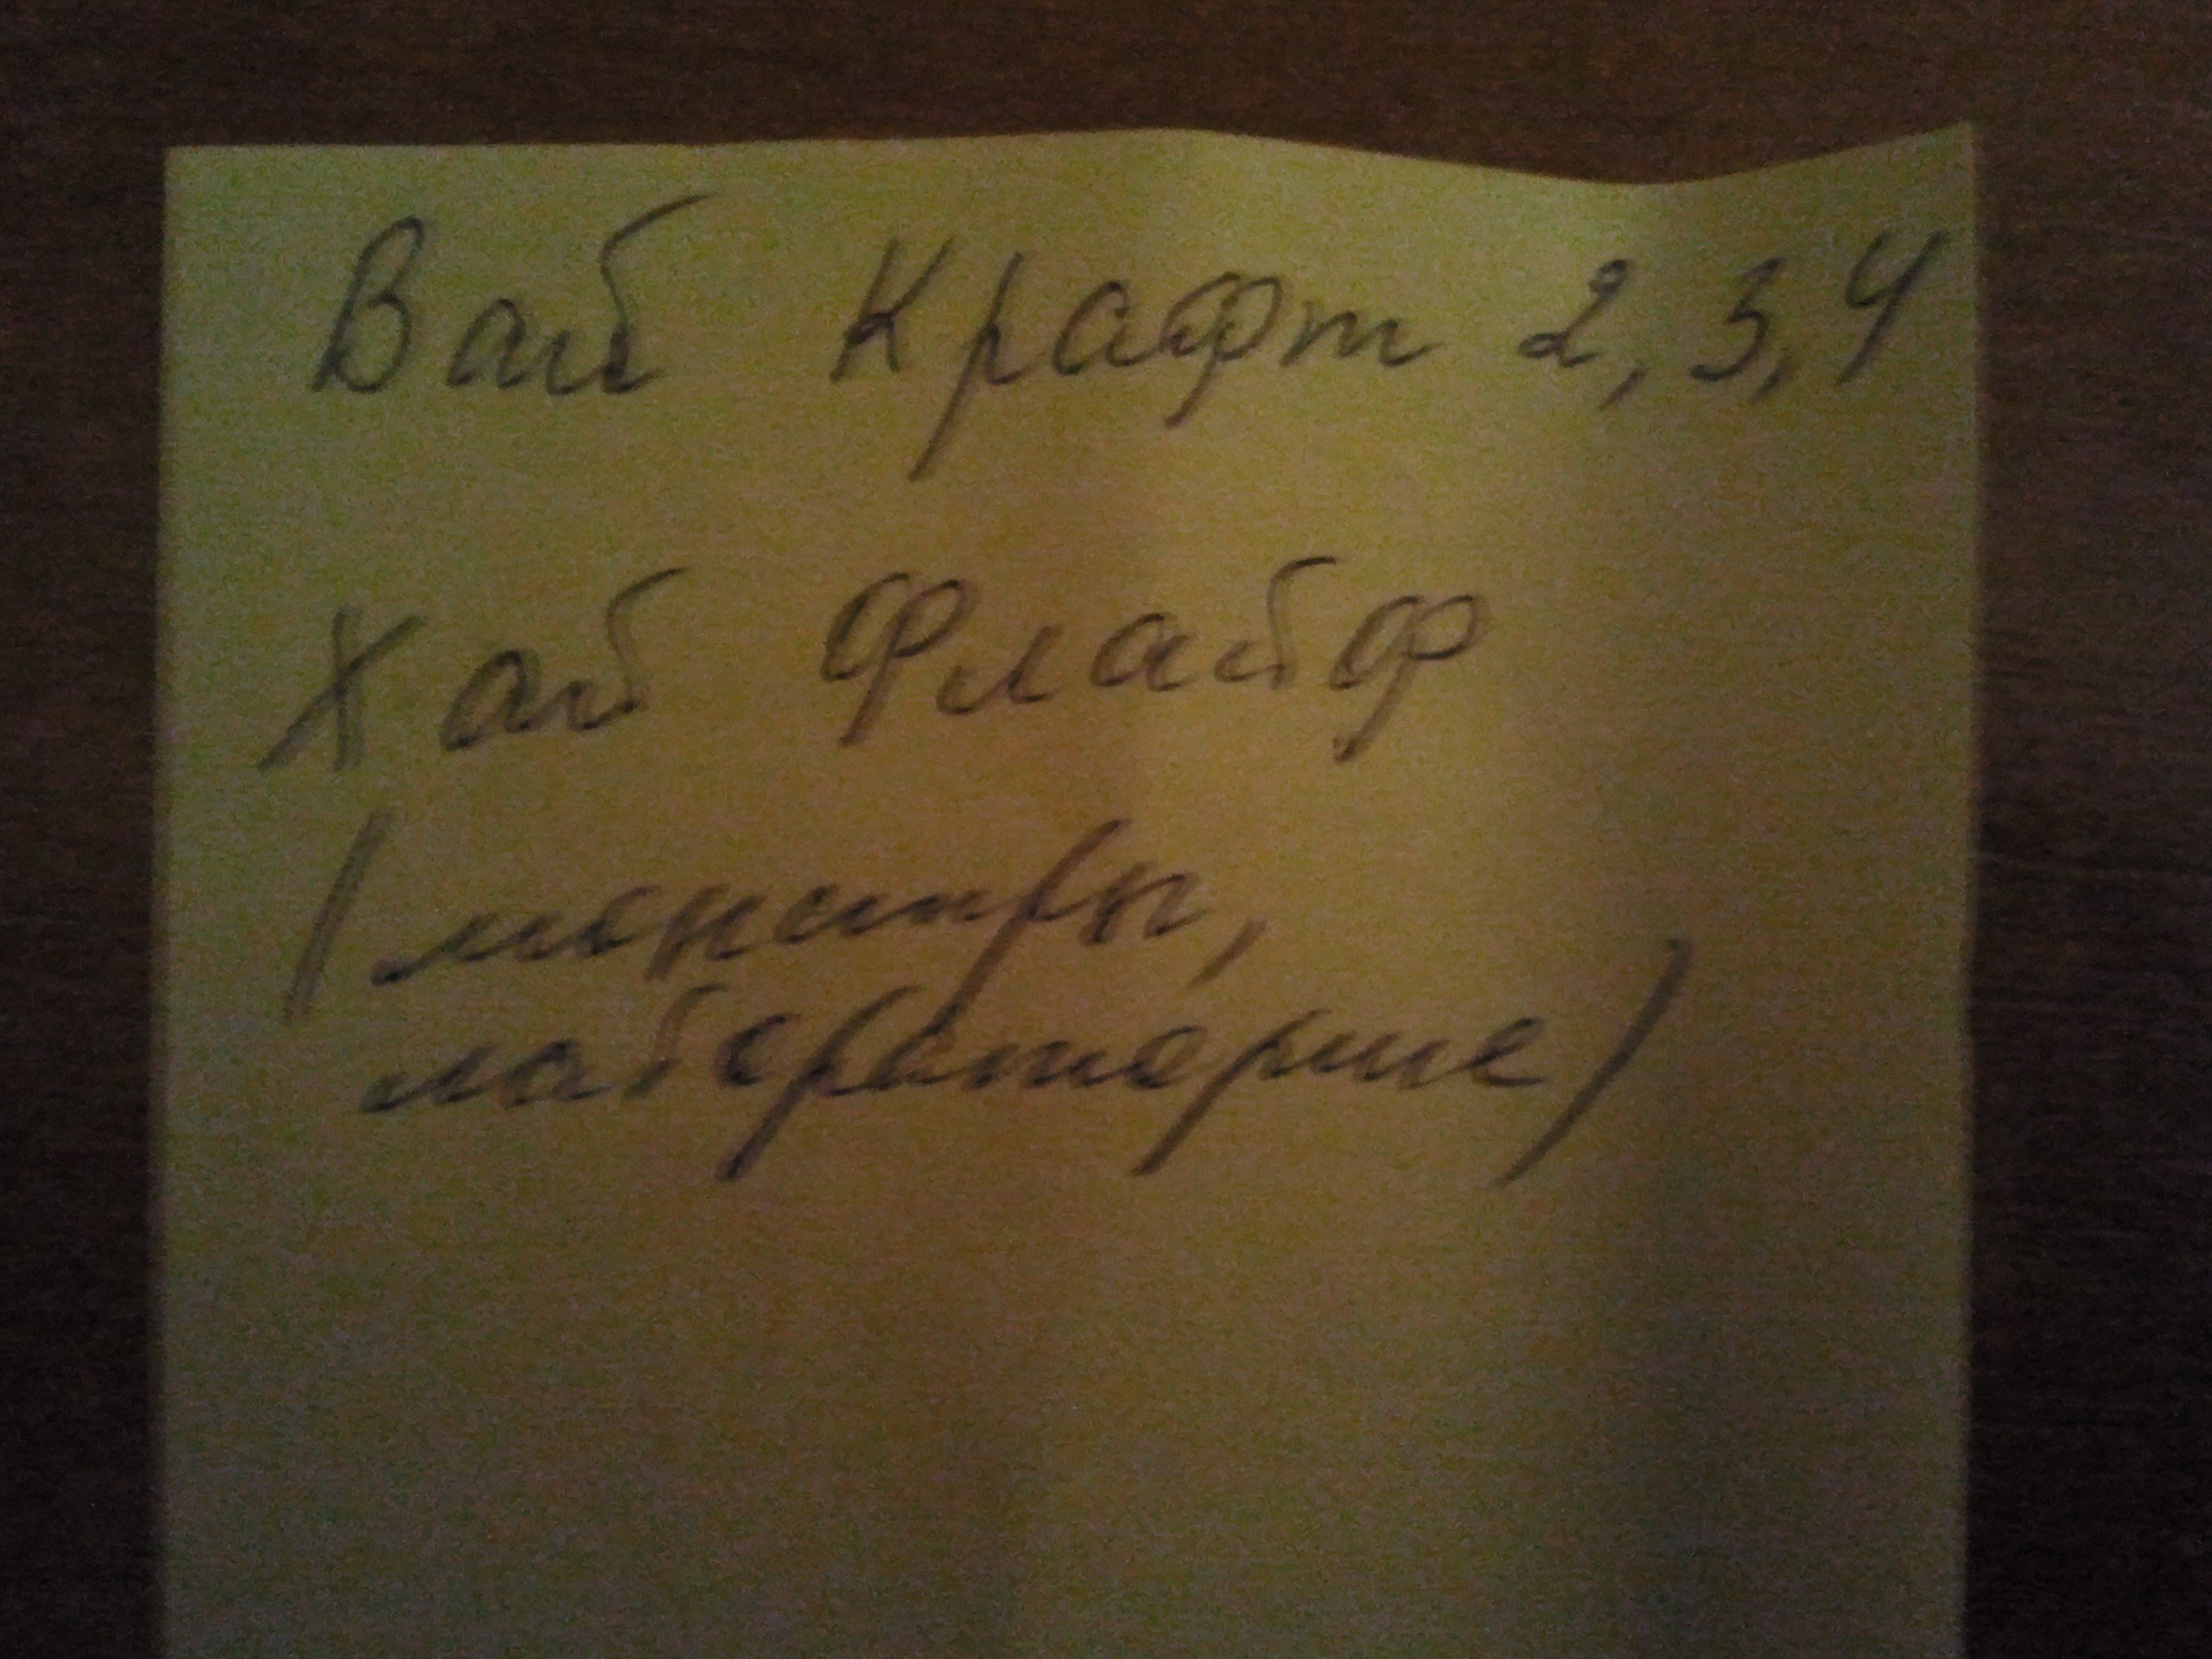 Ваб Крафт 2, 3, 4
Хаб Флабф
(монстры,
лаборатория)